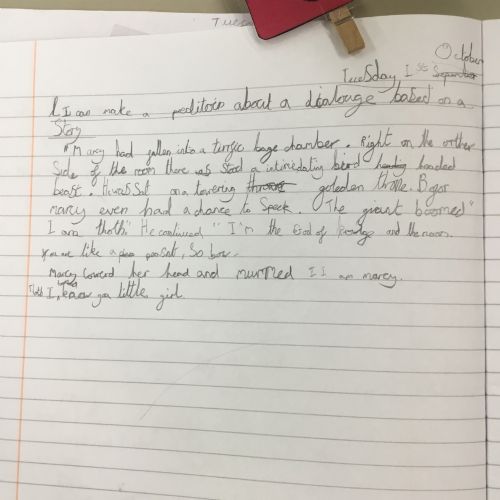 Tuesd
October
Tuesday 1st
L I can make a peditoin about a dialouge based on a
Story
"Marcy had fallen into a turgic bage chamber. Right on the orther
Side of the room there was Stood a intimedating bird headed
beast. He was Sat on a towering goleden throne. Befor
marcy even had a chance to Speek. The gieant boomed"
I am thoth" He continued " I'm the God of knowlge and the moon.
You are like a pea peasat, So bow.
Marcy Cowerd her head and murmed I I am marcy.
I know you little girl.